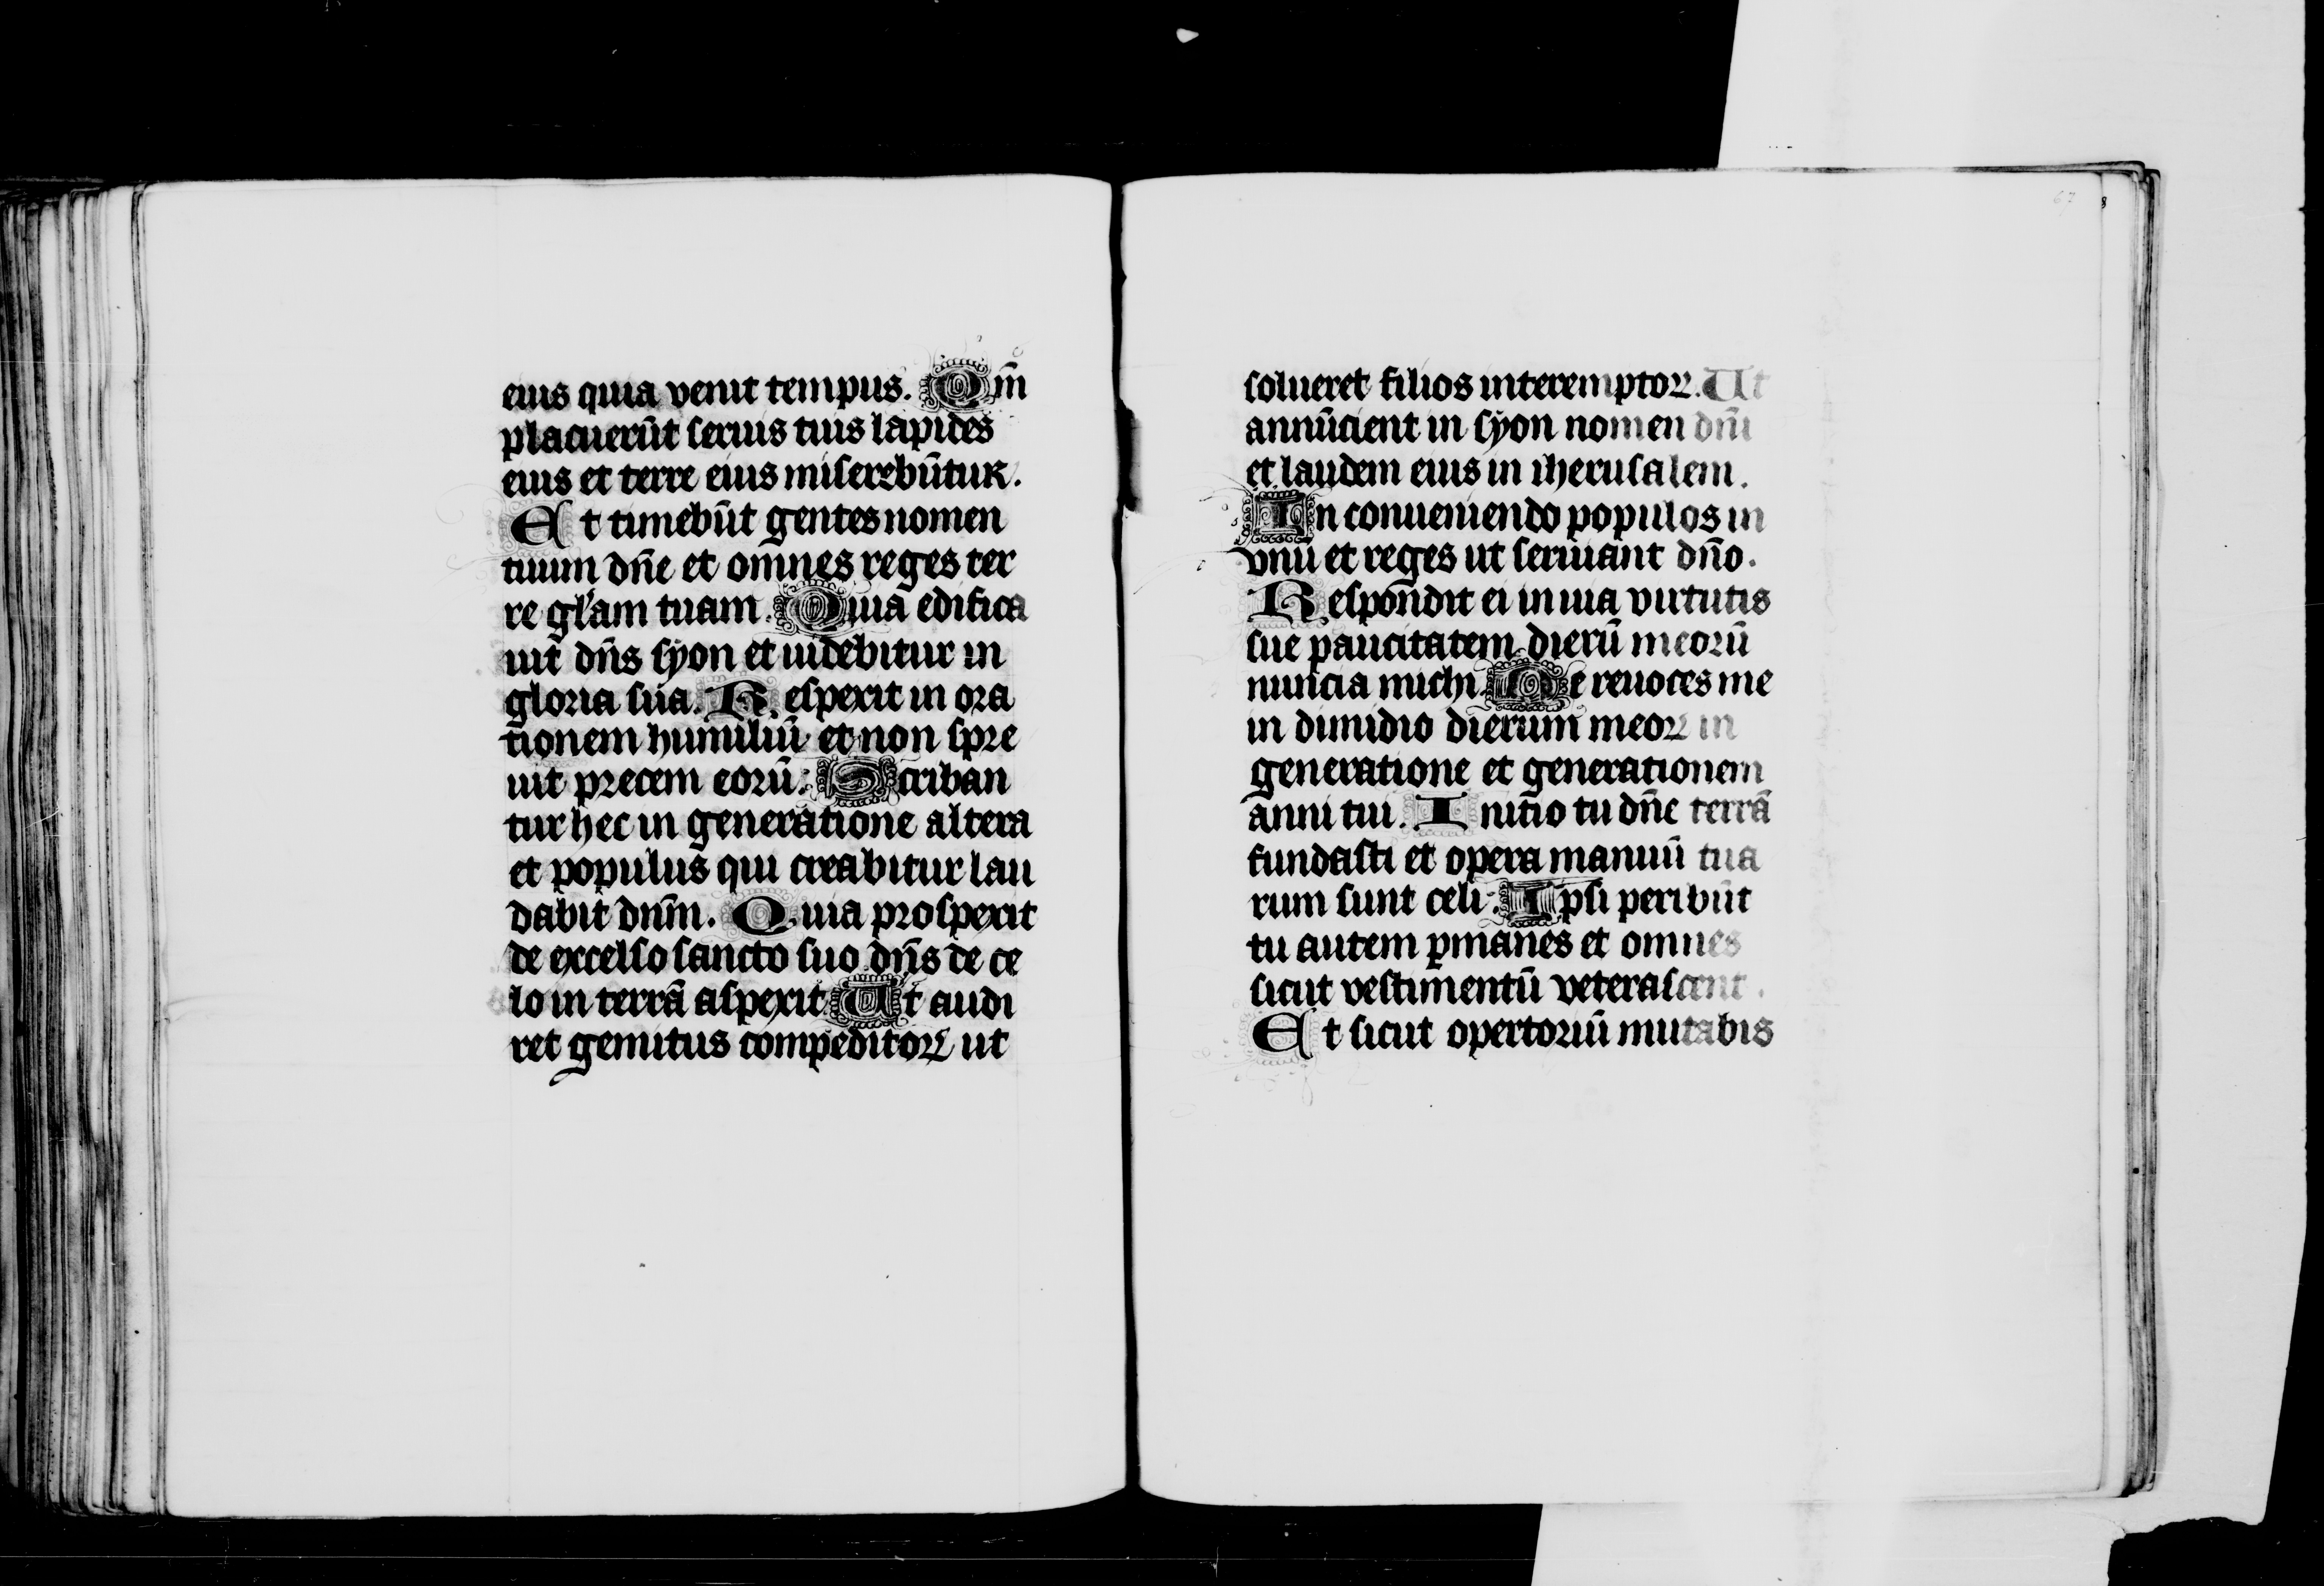 eius quia venit tempus. Qm̄
placuerūt seruis tuis lapides
eius et terre eius miserebūtur.
Et timebūt gentes nomen
tuum dn̄e et omnes reges ter
re gl̄am tuam. Quia edifica
uit dn̄s syon et uidebitur in
gloria sua. Respexit in ora
tionem humiliū et non spre
uit precem eorū. Scriban
tur hec in generatione altera
et populus qui creabitur lau
dabit dnm̄. Quia prospexit
de excelso sancto suo dn̄s de ce
lo in terrā aspexit Ut audi
ret gemitus compeditoꝝ ut
67
solueret filios interemptoꝝ. Ut
annūcient in syon nomen dn̄i
et laudem eius in iherusalem.
In conueniendo populos in
vnū et reges ut seruiant dn̄o.
Respondit ei in uia virtutis
sue paucitatem dierū meorū
nuncia michi. Ne reuoces me
in dimidio dierum meoꝝ in
generatione et generationem
anni tui. Initio tu dn̄e terrā
fundasti et opera manuū tua
rum sunt celi. Ipsi peribūt
tu autem ꝑmanes et omnes
sicut vestimentū veterascent.
Et sicut opertoriū mutabis